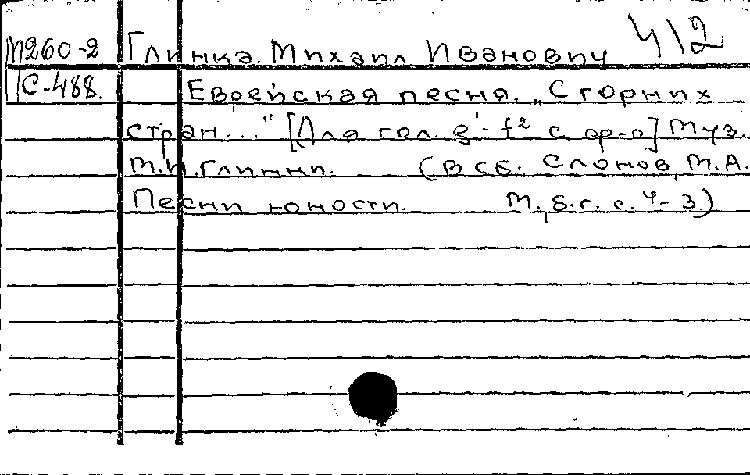 М260-2 Глинка Михаил Иванович 412
С-488. Еврейская песня. „С горних
стран..." [Для гол. e'- f² с ф-п] Муз.
М.И.Глинки. (В сб. Слонов, М.А.
Песни юности. М., б.г. с. 4-3)